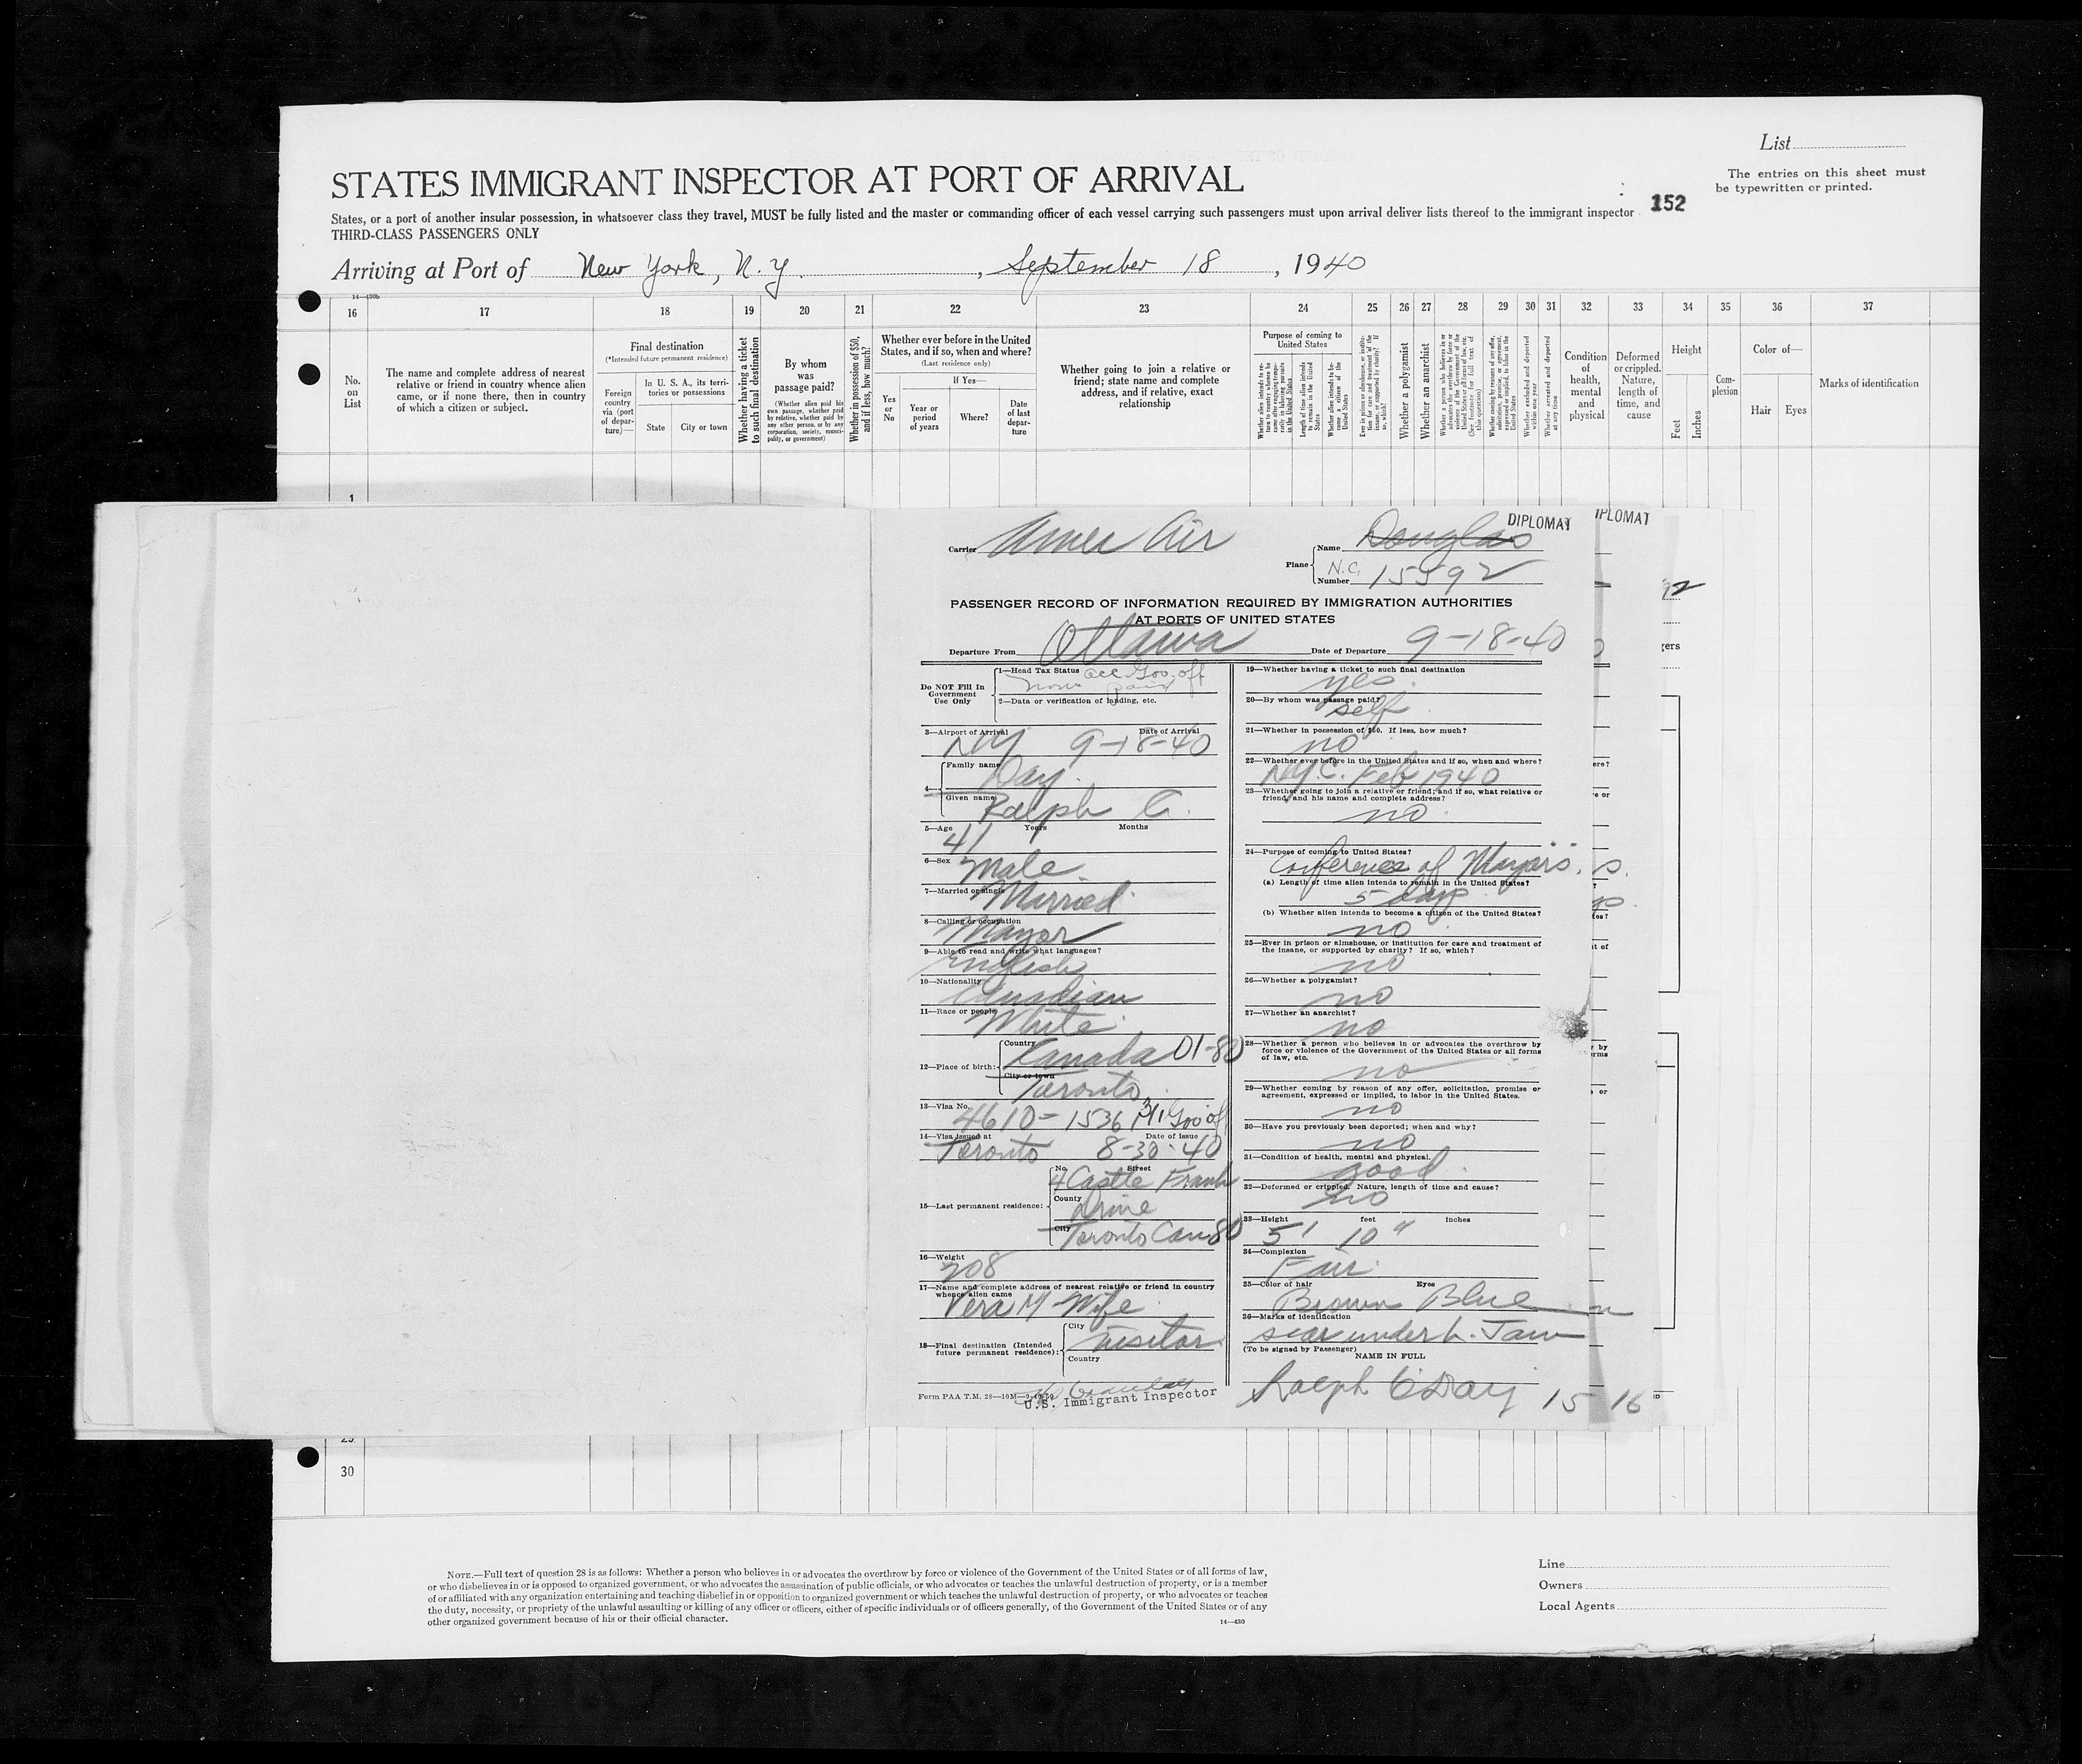 List
The entries on this sheet must
be typewritten or printed.
STATES IMMIGRANT INSPECTOR AT PORT OF ARRIVAL
152
States, or a port of another insular possession, in whatsoever class they travel, MUST be fully listed and the master or commanding officer of each vessel carrying such passengers must upon arrival deliver lists thereof to the immigrant inspector
THIRD-CLASS PASSENGERS ONLY
Arriving at Port of New York, N.Y., September 18, 1940
14—430b
16 17 18 19 20 21 22 23 24 25 26 27 28 29 30 31 32 33 34 35 36 37
No.
on
List
The name and complete address of nearest
relative or friend in country whence alien
came, or if none there, then in country
of which a citizen or subject.
Final destination
(*Intended future permanent residence)
Foreign
country
via (port
of depar-
ture)—
In U. S. A., its terri-
tories or possessions
State City or town
Whether having a ticket
to such final destination
By whom
was
passage paid?
(Whether alien paid his
own passage, whether paid
by relative, whether paid by
any other person, or by any
corporation, society, munici-
pality, or government)
Whether in possession of $50,
and if less, how much?
Whether ever before in the United
States, and if so, when and where?
(Last residence only)
Yes
or
No
If Yes—
Year or
period
of years
Where?
Date
of last
depar-
ture
Whether going to join a relative or
friend; state name and complete
address, and if relative, exact
relationship
Purpose of coming to
United States
Whether a polygamist
Whether an anarchist
Condition
of
health,
mental
and
physical
Deformed
or crippled.
Nature,
length of
time, and
cause
Height
Feet
Inches
Com-
plexion
Color of—
Hair Eyes
Marks of identification
1
DIPLOMAT
IPLOMAT
Carrier Amer Air
Plane
Name Douglas
N.C.
Number 15592
PASSENGER RECORD OF INFORMATION REQUIRED BY IMMIGRATION AUTHORITIES
AT PORTS OF UNITED STATES
Departure From Ottawa Date of Departure 9-18-40
Do NOT Fill In
Government
Use Only
1—Head Tax Status acc Gov. off
none paid
2—Data or verification of landing, etc.
3—Airport of Arrival Date of Arrival
NY 9-18-40
4—
Family name
Day
Given name
Ralph C.
5—Age Years Months
41
6—Sex
Male
7—Married or single
Married
8—Calling or occupation
Mayor
9—Able to read and write what languages?
English
10—Nationality
Canadian
11—Race or people
White
12—Place of birth:
Country
Canada 01-80
City or town
Toronto
13—Visa No.
4610-1536 3/1 Gov of
14—Visa issued at Date of issue
Toronto 8-30-40
15—Last permanent residence:
No. Street
4 Castle Frank
County
Drive
City
Toronto Can 80
16—Weight
208
17—Name and complete address of nearest relative or friend in country
whence alien came
Vera M Wife
18—Final destination (Intended
future permanent residence):
City
visitor
Country
Form PAA T.M. 28—10M
U.S. Immigrant Inspector
19—Whether having a ticket to such final destination
yes
20—By whom was passage paid?
self
21—Whether in possession of $50. If less, how much?
no
22—Whether ever before in the United States and if so, when and where?
N.Y.C. Feb 1940
23—Whether going to join a relative or friend; and if so, what relative or
friend, and his name and complete address?
no
24—Purpose of coming to United States?
Conference of Mayors.
(a) Length of time alien intends to remain in the United States?
5 days
(b) Whether alien intends to become a citizen of the United States?
no
25—Ever in prison or almshouse, or institution for care and treatment of
the insane, or supported by charity? If so, which?
no
26—Whether a polygamist?
no
27—Whether an anarchist?
no
28—Whether a person who believes in or advocates the overthrow by
force or violence of the Government of the United States or all forms
of law, etc.
no
29—Whether coming by reason of any offer, solicitation, promise or
agreement, expressed or implied, to labor in the United States.
no
30—Have you previously been deported; when and why?
no
31—Condition of health, mental and physical.
good
32—Deformed or crippled. Nature, length of time and cause?
no
33—Height feet inches
5' 10"
34—Complexion
Fair
35—Color of hair Eyes
Brown Blue
36—Marks of identification
scar under L. Jaw
(To be signed by Passenger)
NAME IN FULL
Ralph C Day 15 16
30
NOTE.—Full text of question 28 is as follows: Whether a person who believes in or advocates the overthrow by force or violence of the Government of the United States or of all forms of law,
or who disbelieves in or is opposed to organized government, or who advocates the assassination of public officials, or who advocates or teaches the unlawful destruction of property, or is a member
of or affiliated with any organization entertaining and teaching disbelief in or opposition to organized government or which teaches the unlawful destruction of property, or who advocates or teaches
the duty, necessity, or propriety of the unlawful assaulting or killing of any officer or officers, either of specific individuals or of officers generally, of the Government of the United States or of any
other organized government because of his or their official character.
14—430
Line
Owners
Local Agents